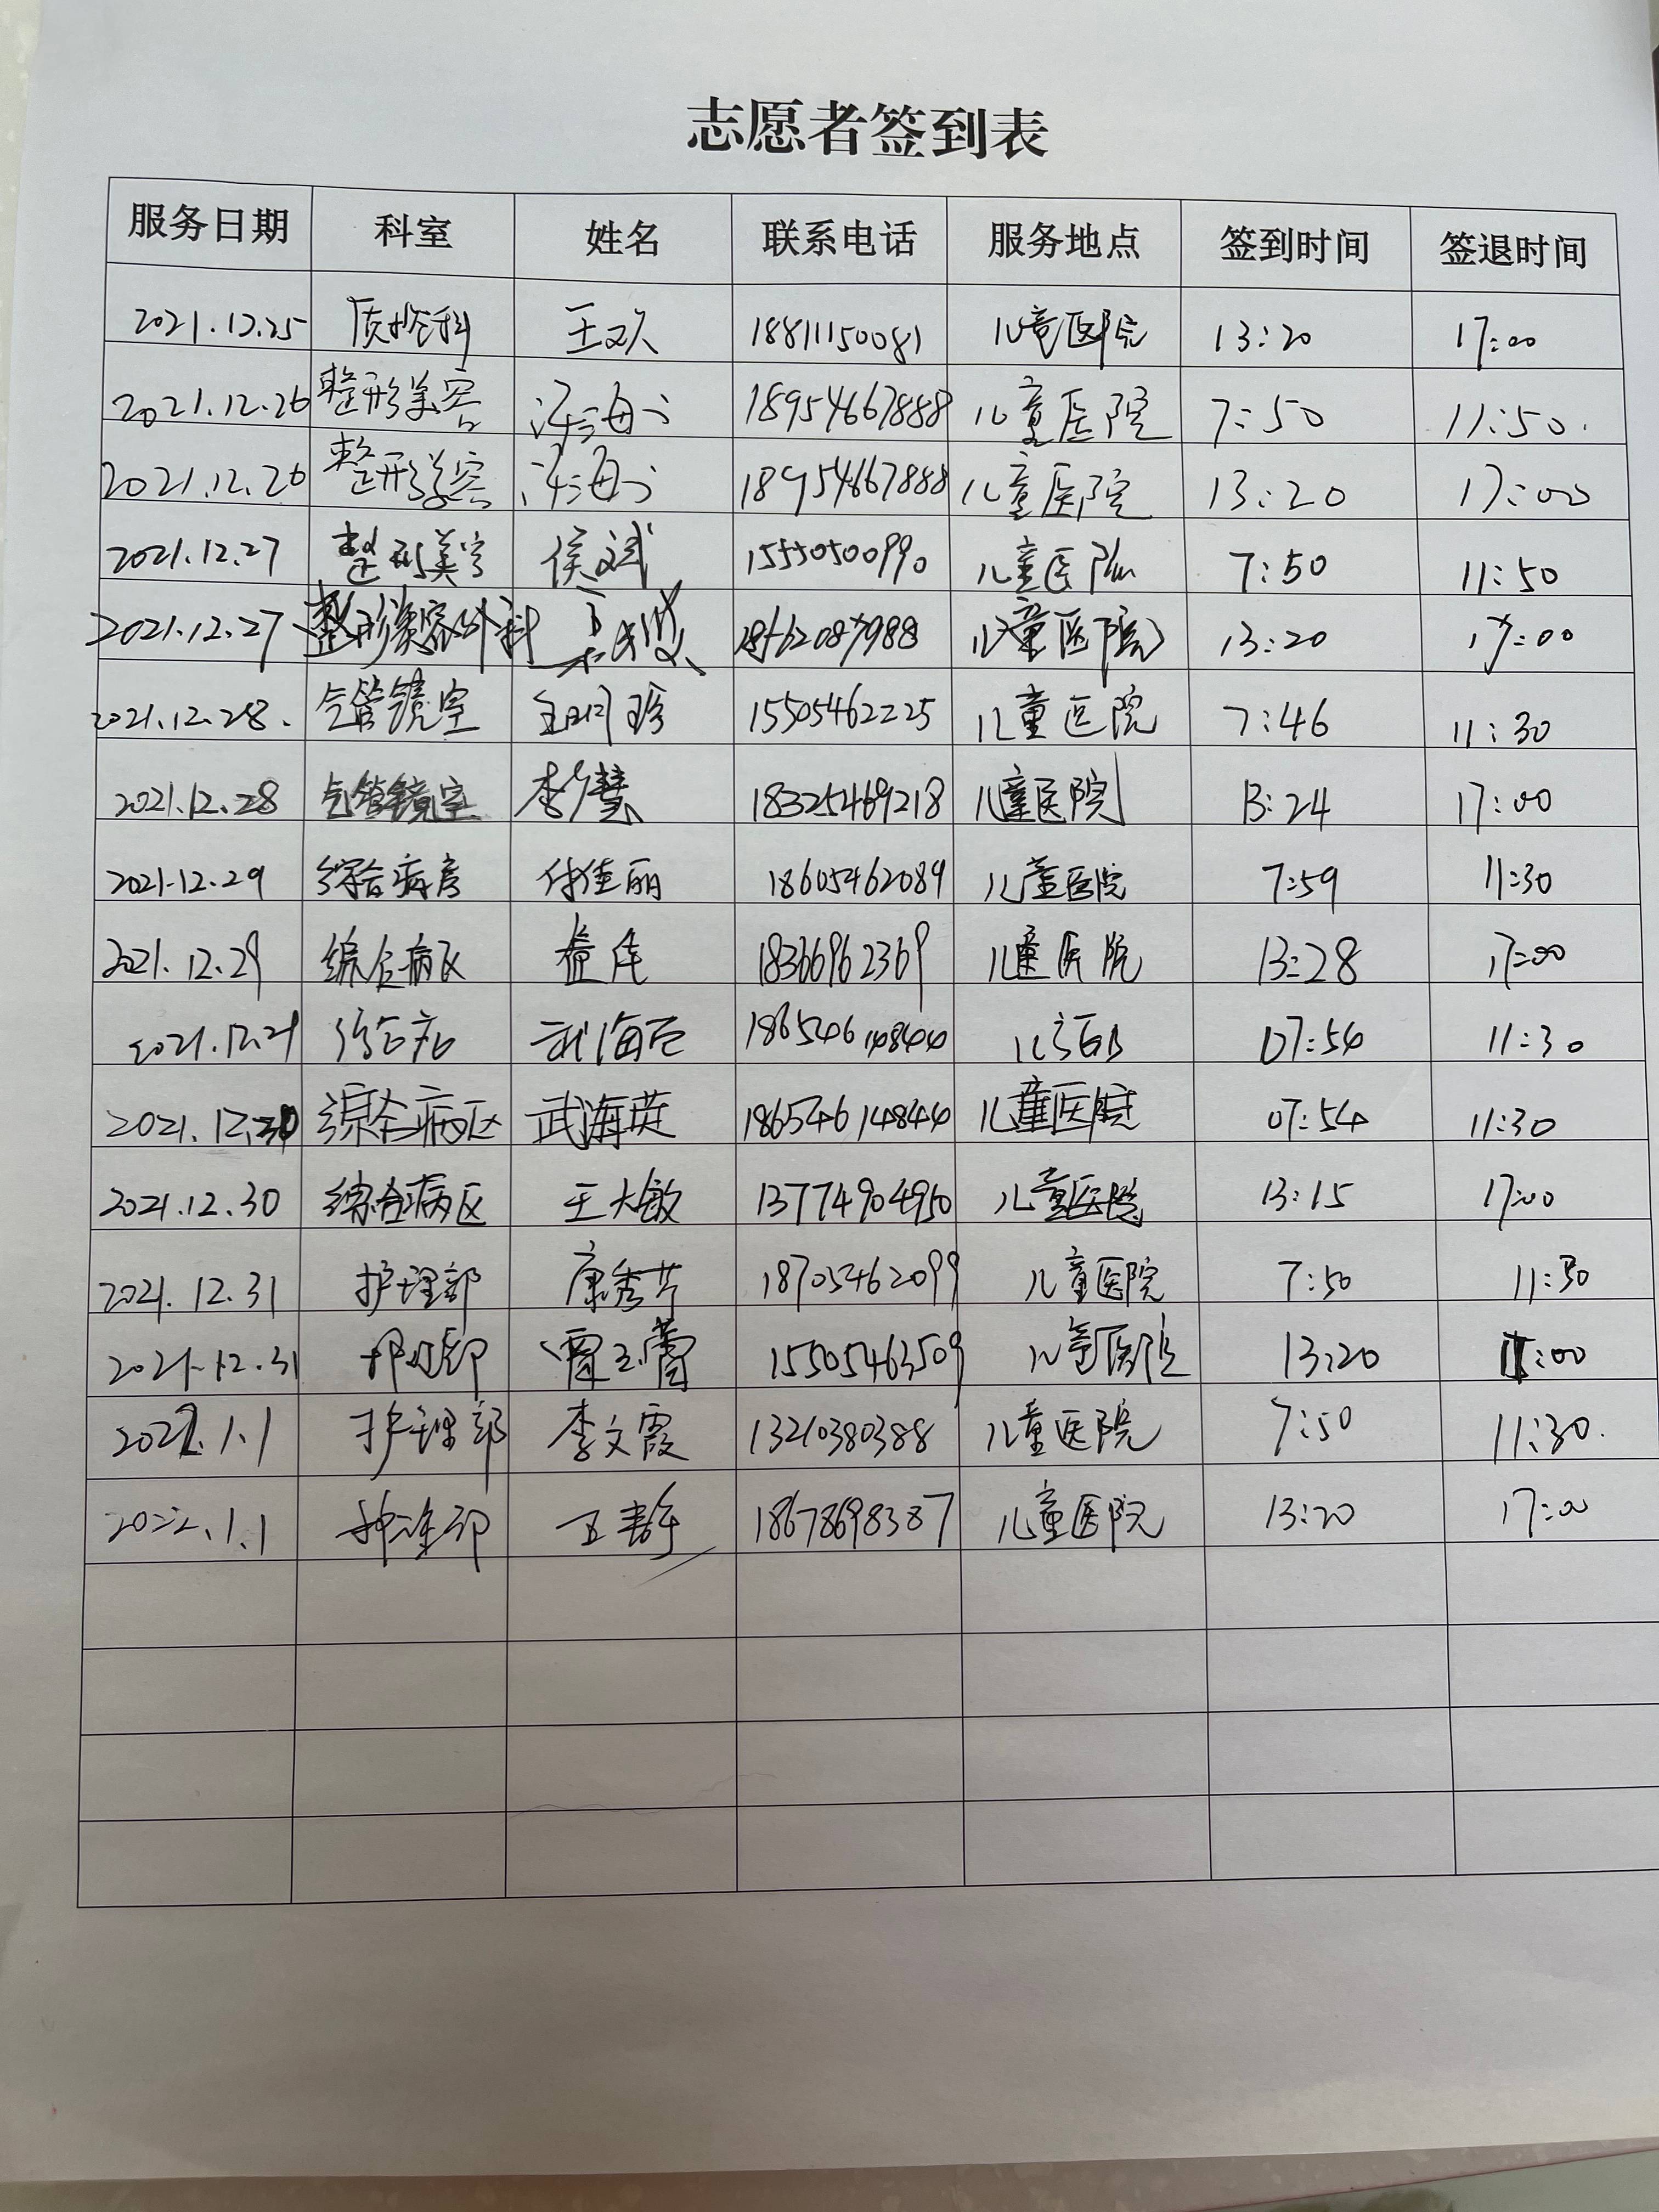 志愿者签到表
服务日期 科室 姓名 联系电话 服务地点 签到时间 签退时间
2021.12.25 质控科 18811150081 儿童医院 13:20 17:00
2021.12.26 整形美容 18954667888 儿童医院 7:50 11:50.
2021.12.26 整形美容 18954667888 儿童医院 13:20 17:00
2021.12.27 整形美容 侯文斌 15550500990 儿童医院 7:50 11:50
2021.12.27 整形美容外科 儿童医院 13:20 17:00
2021.12.28. 气管镜室 15505462225 儿童医院 7:46 11:30
2021.12.28 气管镜室 18325469218 儿童医院 13:24 17:00
2021.12.29 综合病房 佳丽 18605462089 儿童医院 7:59 11:30
2021.12.29 综合病区 18366962369 儿童医院 13:28 17:00
2021.12.29 武海 07:54 11:30
2021.12.30 综合病区 武海英 儿童医院 07:54 11:30
2021.12.30 综合病区 王大敏 13774904950 儿童医院 13:15 17:00
2021.12.31 护理部 康秀芹 18705462099 儿童医院 7:50 11:30
2021.12.31 护理部 15505463509 儿童医院 13:20 :00
2022.1.1 护理部 李文霞 13210380388 儿童医院 7:50 11:30.
2022.1.1 护理部 18678698387 儿童医院 13:20 17:00